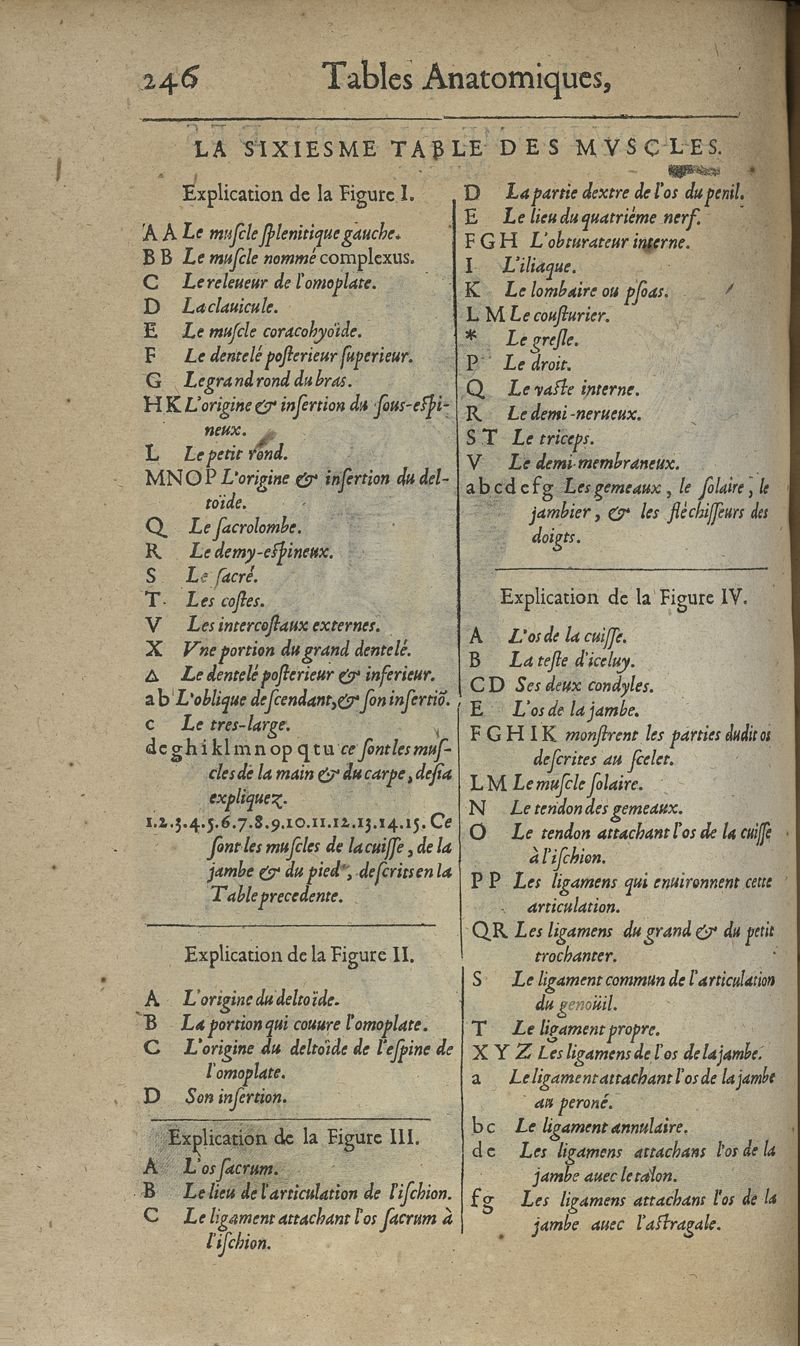 246 Tables Anatomiques,
LA SIXIESME TABLE DES MVSCLES.
Explication de la Figure I.
A A Le muſcle ſplenitique gauche.
B B Le muſcle nommé complexus.
C Le releueur de l'omoplate.
D La clauicule.
E Le muſcle coracohyoïde.
F Le dentelé poſterieur ſuperieur.
G Le grand rond du bras.
H K L'origine & inſertion du ſous-eſpi-
neux.
L Le petit rond.
MNOP L'origine & inſertion du del-
toïde.
Q Le ſacrolombe.
R Le demy-eſpineux.
S Le ſacré.
T. Les coſtes.
V Les intercoſtaux externes.
X Vne portion du grand dentelé.
Δ Le dentelé poſterieur & inferieur.
a b L'oblique deſcendant, & ſon inſertiō.
c Le tres-large.
d e g h i k l m n o p q t u ce ſont les muſ-
cles de la main & du carpe, deſia
expliquez.
1.2.3.4.5.6.7.8.9.10.11.12.13.14.15. Ce
ſont les muſcles de la cuiſſe, de la
jambe & du pied, deſcrits en la
Table precedente.
Explication de la Figure II.
A L'origine du deltoïde.
B La portion qui couure l'omoplate.
C L'origine du deltoïde de l'eſpine de
l'omoplate.
D Son inſertion.
Explication de la Figure III.
A L'os ſacrum.
B Le lieu de l'articulation de l'iſchion.
C Le ligament attachant l'os ſacrum à
l'iſchion.
D La partie dextre de l'os du penil.
E Le lieu du quatriéme nerf.
F G H L'obturateur interne.
I L'iliaque.
K Le lombaire ou pſoas.
L M Le couſturier.
* Le greſle.
P Le droit.
Q Le vaſte interne.
R Le demi-nerueux.
S T Le triceps.
V Le demi-membraneux.
a b c d e f g Les gemeaux, le ſolaire, le
jambier, & les fléchiſſeurs des
doigts.
Explication de la Figure IV.
A L'os de la cuiſſe.
B La teſte d'iceluy.
C D Ses deux condyles.
E L'os de la jambe.
F G H I K monſtrent les parties dudit os
deſcrites au ſcelet.
L M Le muſcle ſolaire.
N Le tendon des gemeaux.
O Le tendon attachant l'os de la cuiſſe
à l'iſchion.
P P Les ligamens qui enuironnent cette
articulation.
QR Les ligamens du grand & du petit
trochanter.
S Le ligament commun de l'articulation
du genoüil.
T Le ligament propre.
X Y Z Les ligamens de l'os de la jambe.
a Le ligament attachant l'os de la jambe
au peroné.
b c Le ligament annulaire.
d e Les ligamens attachans l'os de la
jambe auec le talon.
f g Les ligamens attachans l'os de la
jambe auec l'aſtragale.